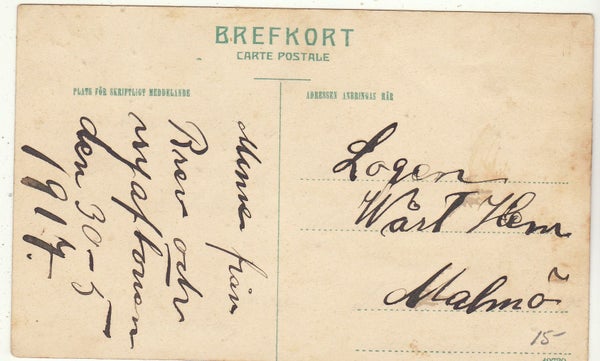 BREFKORT
CARTE POSTALE
PLATS FÖR SKRIFTLIGT MEDDELANDE
ADRESSEN ANBRINGAS HÄR
Minne från
Brev och
den 30-5
1917.
Logen
Wårt Hem
Malmö
15-